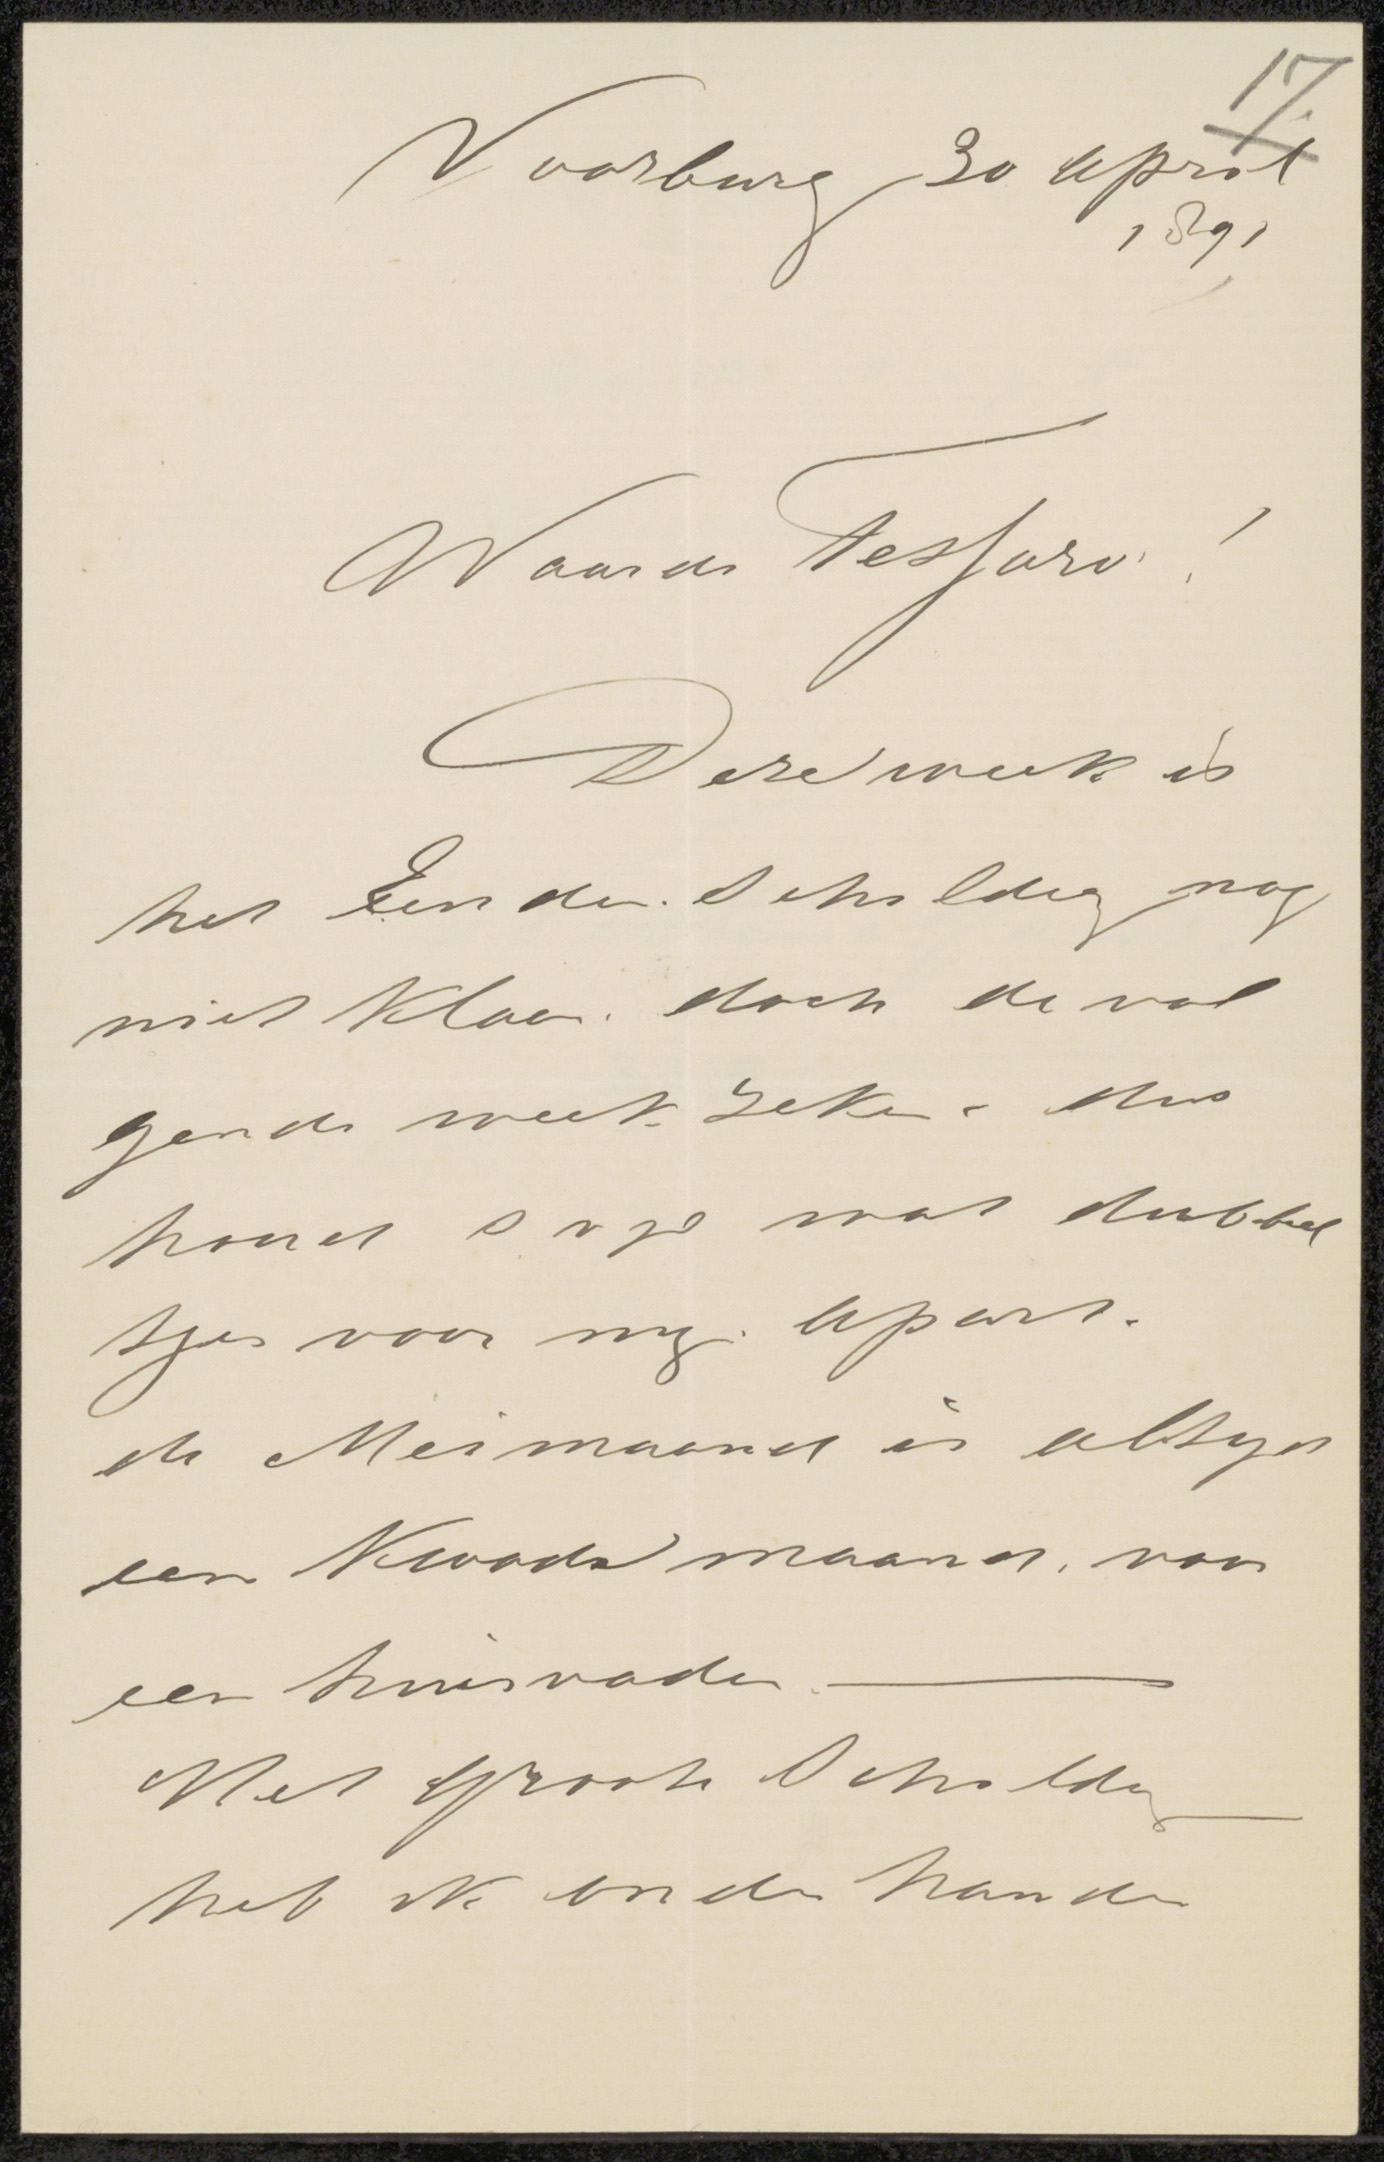 17.
Voorburg 30 april
1891
Waarde Tessaro!
Deze week is
het Eenden Schildery nog
niet klaar. doch de vol
gende week zeker - dus
houdt s v p wat dubbel
tjes voor my. apart.
de Meimaand is altyd
een kwade maand. voor
een huisvader. —
Het groote Schildery
heb ik onder handen